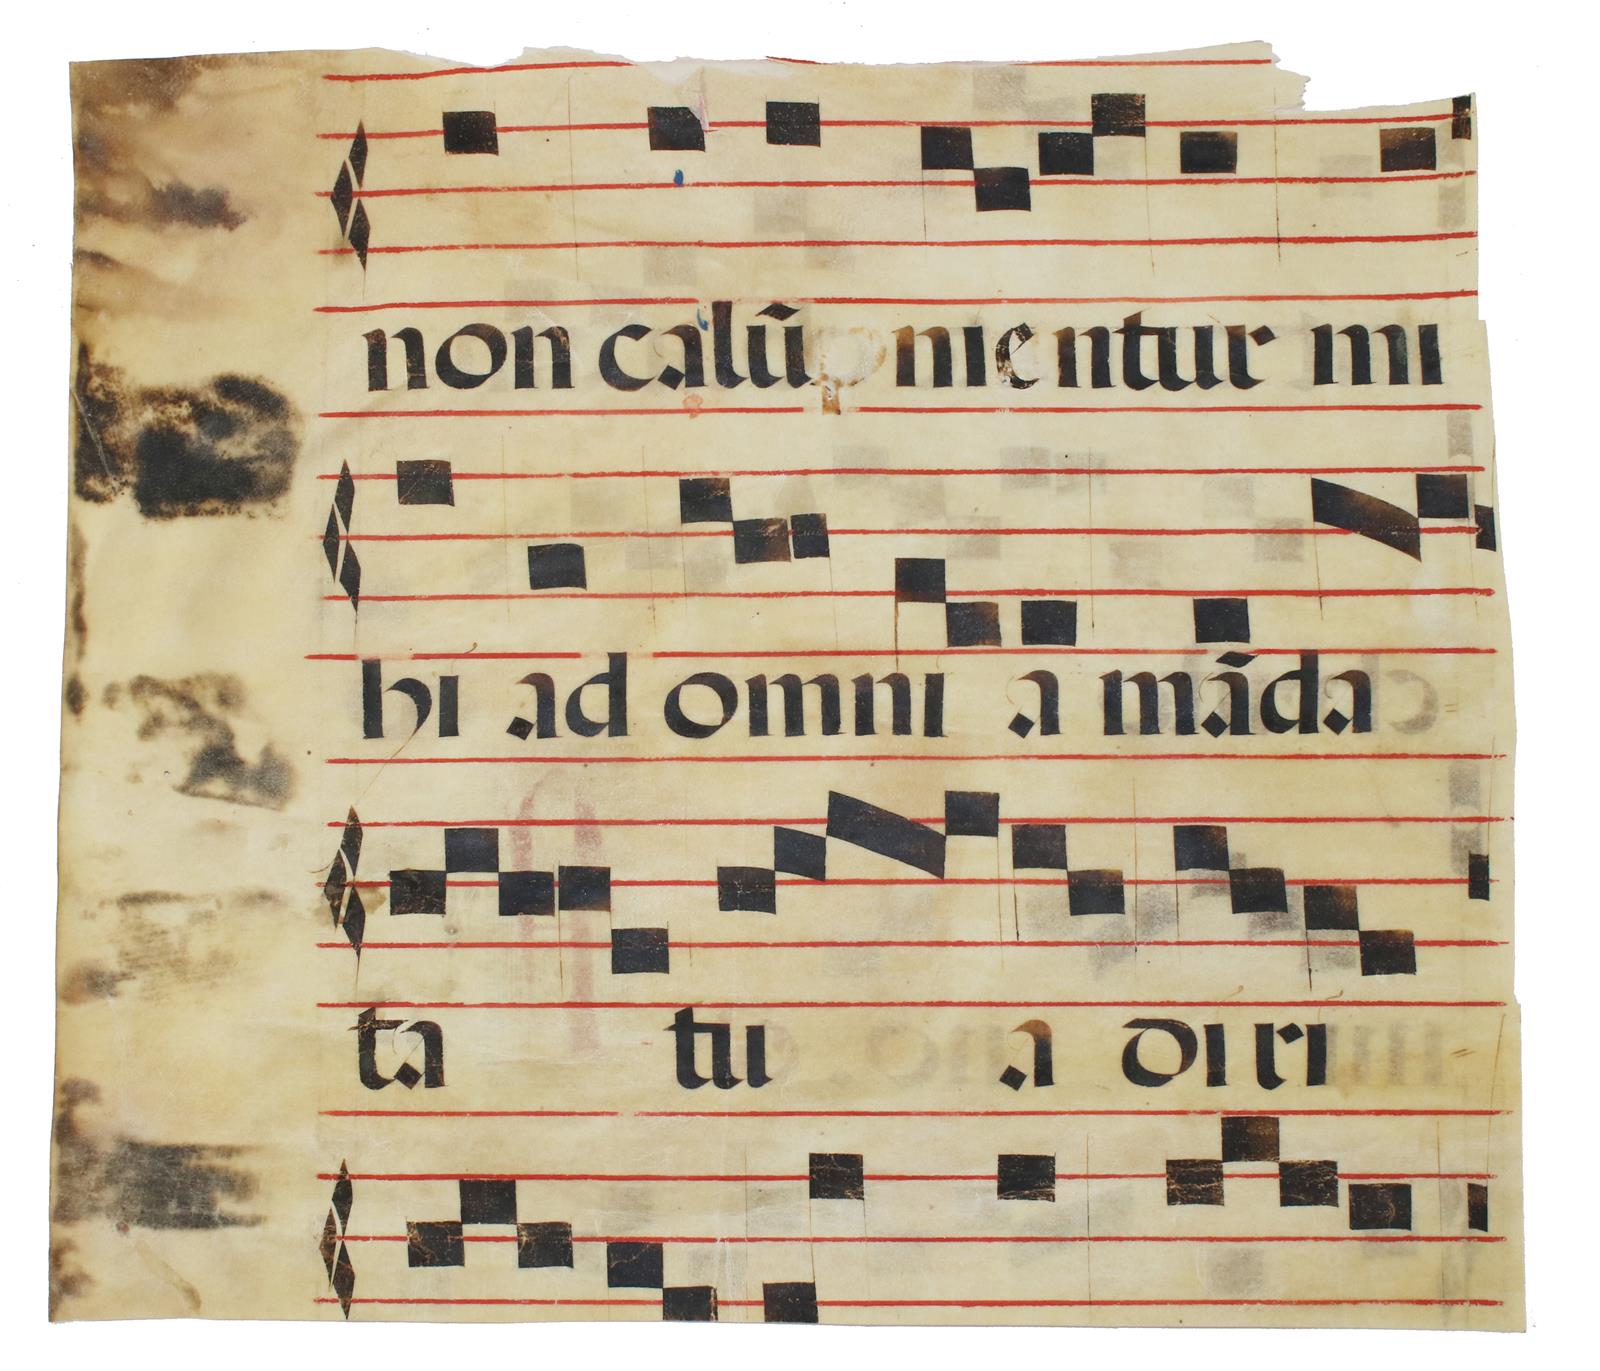 non calũpnientur mi
hi ad omni a mãda
ta tu a diri